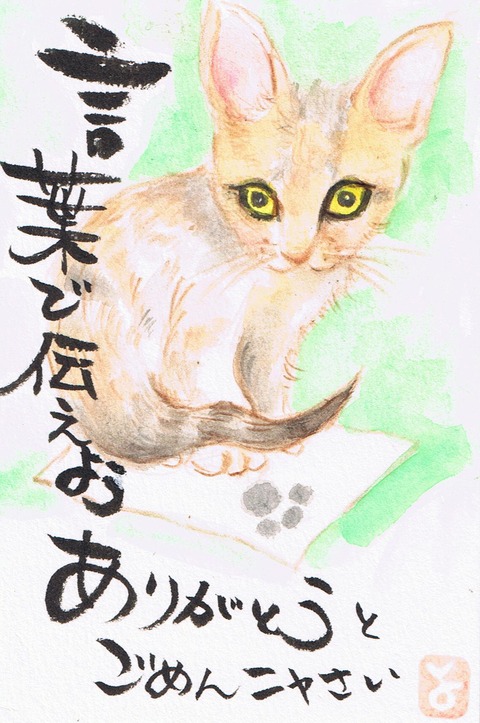 言葉で伝えよう
ありがとうと
ごめんニャさい